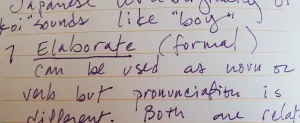 Japanese
"koi" sounds like "boy"
1 Elaborate (formal)
can be used as noun or
verb but pronunciation is
different. Both are relat